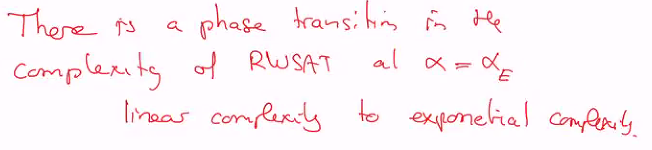 There is a phase transition in the
complexity of RWSAT at α = α_E
linear complexity to exponetial complexity.